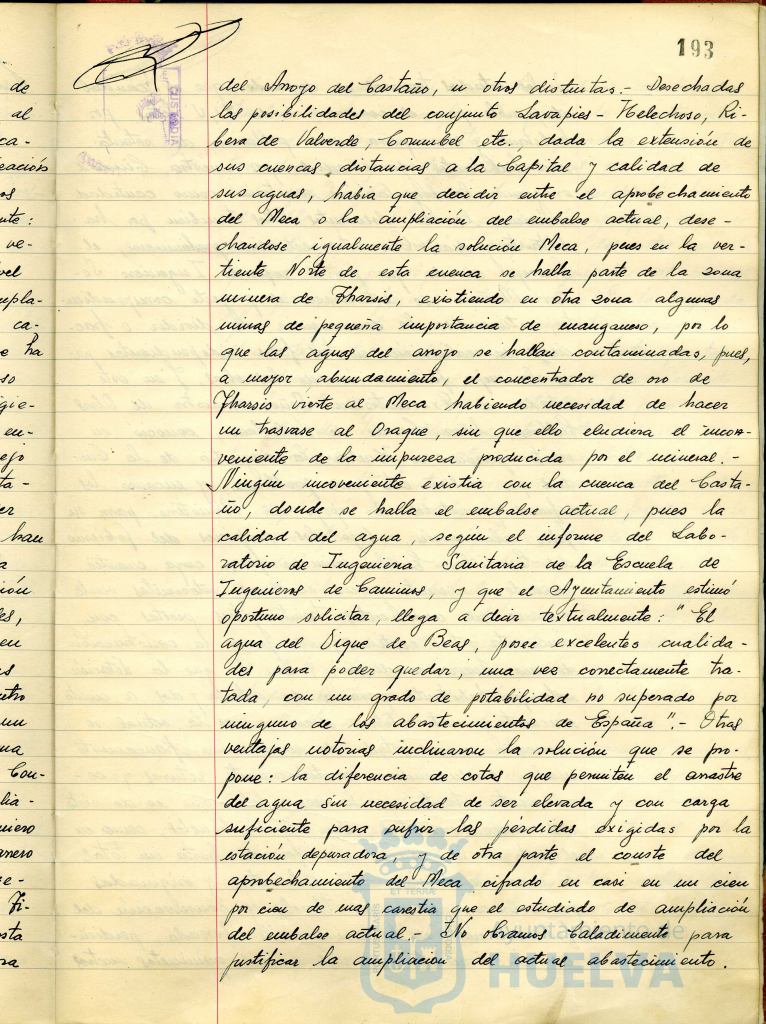 193
del Arroyo del Castaño, u otros distintas.- Desechadas
las posibilidades del conjunto Lavapies - Helechoso, Ri-
bera de Valverde, Corumbel etc., dada la extensión de
sus cuencas, distancias a la Capital y calidad de
sus aguas, habia que decidir entre el aprobechamiento
del Meca o la ampliación del embalse actual, dese-
chandose igualmente la solución Meca, pues en la ver-
tiente Norte de esta cuenca se halla parte de la zona
minera de Tharsis, existiendo en otra zona algunas
minas de pequeña importancia de manganeso, por lo
que las aguas del arroyo se hallan contaminadas, pues,
a mayor abundamiento, el concentrador de oro de
Tharsis vierte al Meca habiendo necesidad de hacer
un trasvase al Oraque, sin que ello eludiera el incon-
veniente de la impureza producida por el mineral.-
Ningun incoveniente existia con la cuenca del Casta-
ño, donde se halla el embalse actual, pues la
calidad del agua, según el informe del Labo-
ratorio de Ingenieria Sanitaria de la Escuela de
Ingenieros de Caminos, y que el Ayuntamiento estimó
oportuno solicitar, llega a decir textualmente: "El
agua del Dique de Beas, posee excelentes cualida-
des para poder quedar, una vez correctamente tra-
tada, con un grado de potabilidad no superado por
ninguno de los abastecimientos de España".- Otras
ventajas notorias inclinaron la solución que se pro-
pone: la diferencia de cotas que permiten el arrastre
del agua sin necesidad de ser elevada y con carga
suficiente para sufrir las pérdidas exigidas por la
estación depuradora, y de otra parte el conste del
aprobechamiento del Meca, cifrado en casi en un cien
por cien de mas carestia que el estudiado de ampliación
del embalse actual.- No obramos baladimente para
justificar la ampliación del actual abastecimiento.
Ayuntamiento de
HUELVA